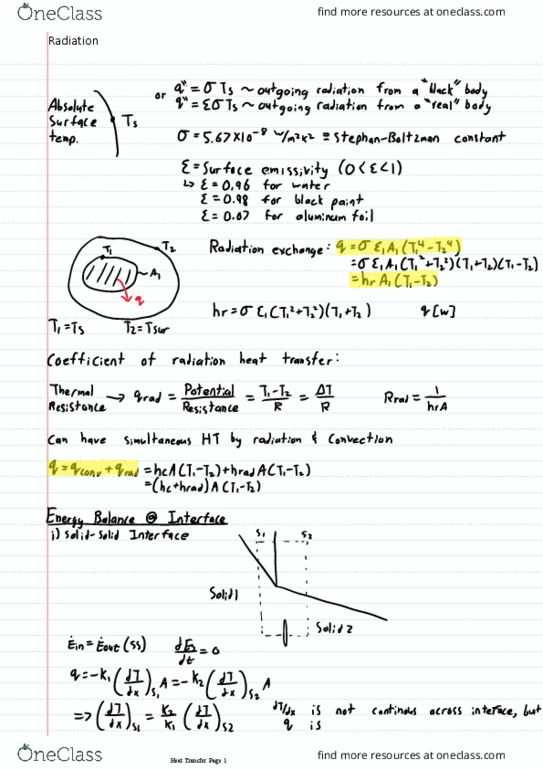 OneClass
find more resources at oneclass.com
Radiation
Absolute Surface temp.
Ts
or q" = σTs ~ outgoing radiation from a "black" body
q" = εσTs ~ outgoing radiation from a "real" body
σ = 5.67x10⁻⁸ W/m²k² ≡ Stephan-Boltzman constant
ε = Surface emissivity (0<ε<1)
↳ ε = 0.96 for water
ε = 0.98 for black paint
ε = 0.07 for aluminum foil
T₁
T₂
A₁
q
T₁ = Ts
T₂ = Tsur
Radiation exchange: q = σε₁A₁(T₁⁴-T₂⁴)
= σε₁A₁(T₁²+T₂²)(T₁+T₂)(T₁-T₂)
= hrA₁(T₁-T₂)
hr = σε₁(T₁²+T₂²)(T₁+T₂)
q[w]
Coefficient of radiation heat transfer:
Thermal Resistance → qrad = Potential/Resistance = T₁-T₂/R = ΔT/R
Rrad = 1/hrA
Can have simultaneous HT by radiation & Convection
q = qconv + qrad = hcA(T₁-T₂)+hradA(T₁-T₂)
= (hc+hrad)A(T₁-T₂)
Energy Balance @ Interface
i) Solid-Solid Interface
S₁
S₂
Solid 1
Solid 2
Ėin = Ėout (ss)
dEs/dt = 0
q = -k₁(dT/dx)s₁A = -k₂(dT/dx)s₂A
=> (dT/dx)s₁ = k₂/k₁ (dT/dx)s2
dT/dx is not continous across interface, but
q is
Heat Transfer Page 1
OneClass
find more resources at oneclass.com